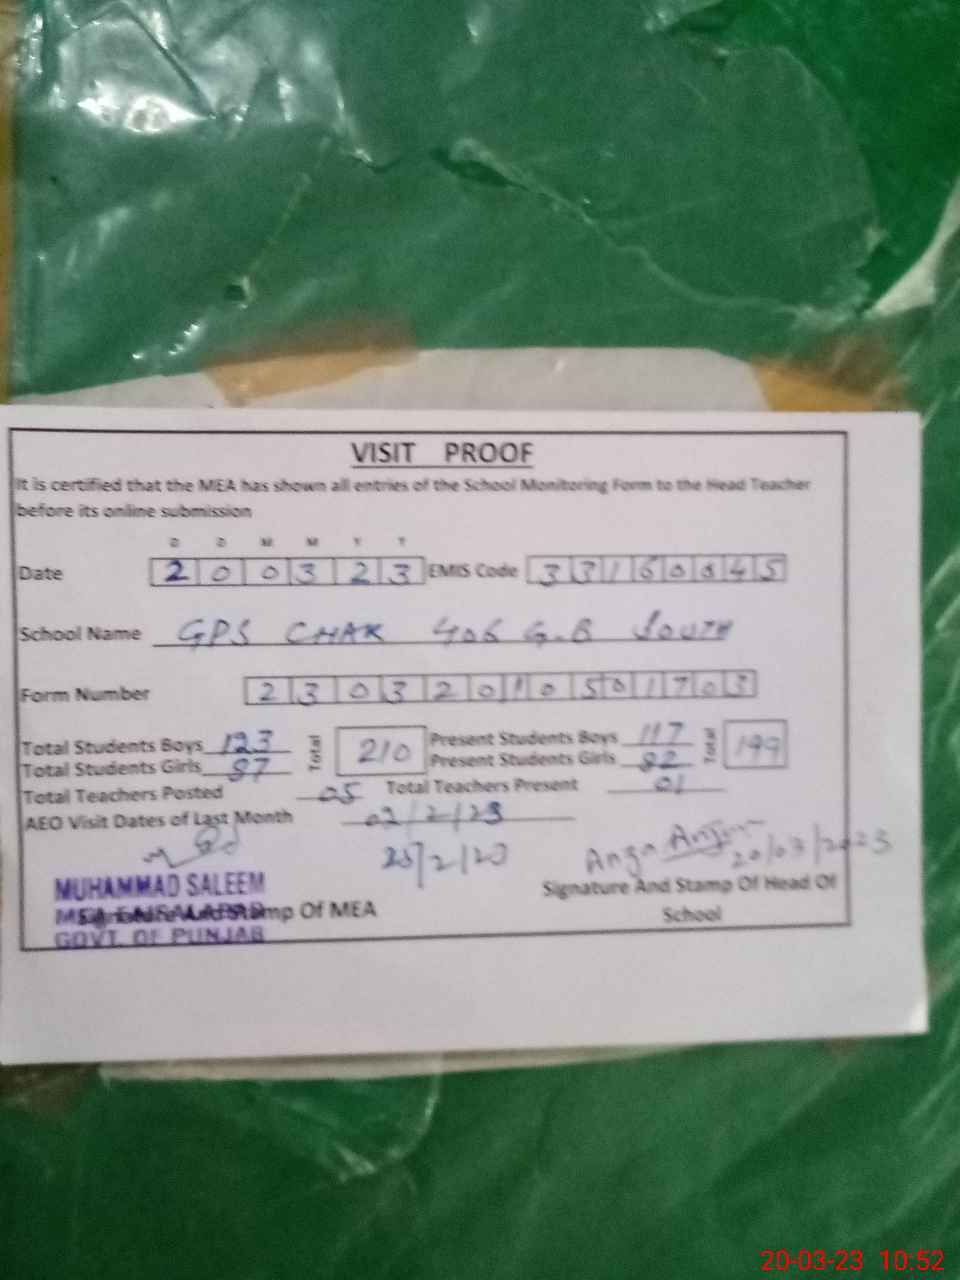 VISIT PROOF
It is certified that the MEA has shown all entries of the School Monitoring Form to the Head Teacher
before its online submission
D D M M Y Y
Date 2 0 0 3 2 3 EMIS Code 3 3 1 6 0 0 4 5
School Name GPS CHAK 406 G.B SOUTH
Form Number 2 3 0 3 2 0 1 0 5 0 1 7 0 3
Total Students Boys 123 Total 210 Present Students Boys 117 Total 199
Total Students Girls 87 Present Students Girls 82
Total Teachers Posted 05 Total Teachers Present 01
AEO Visit Dates of Last Month 02/2/23
/2/23 20/03/2023
MUHAMMAD SALEEM Signature And Stamp Of Head Of
MEA FAISALABAD Signature And Stamp Of MEA School
GOVT. OF PUNJAB
20-03-23 10:52